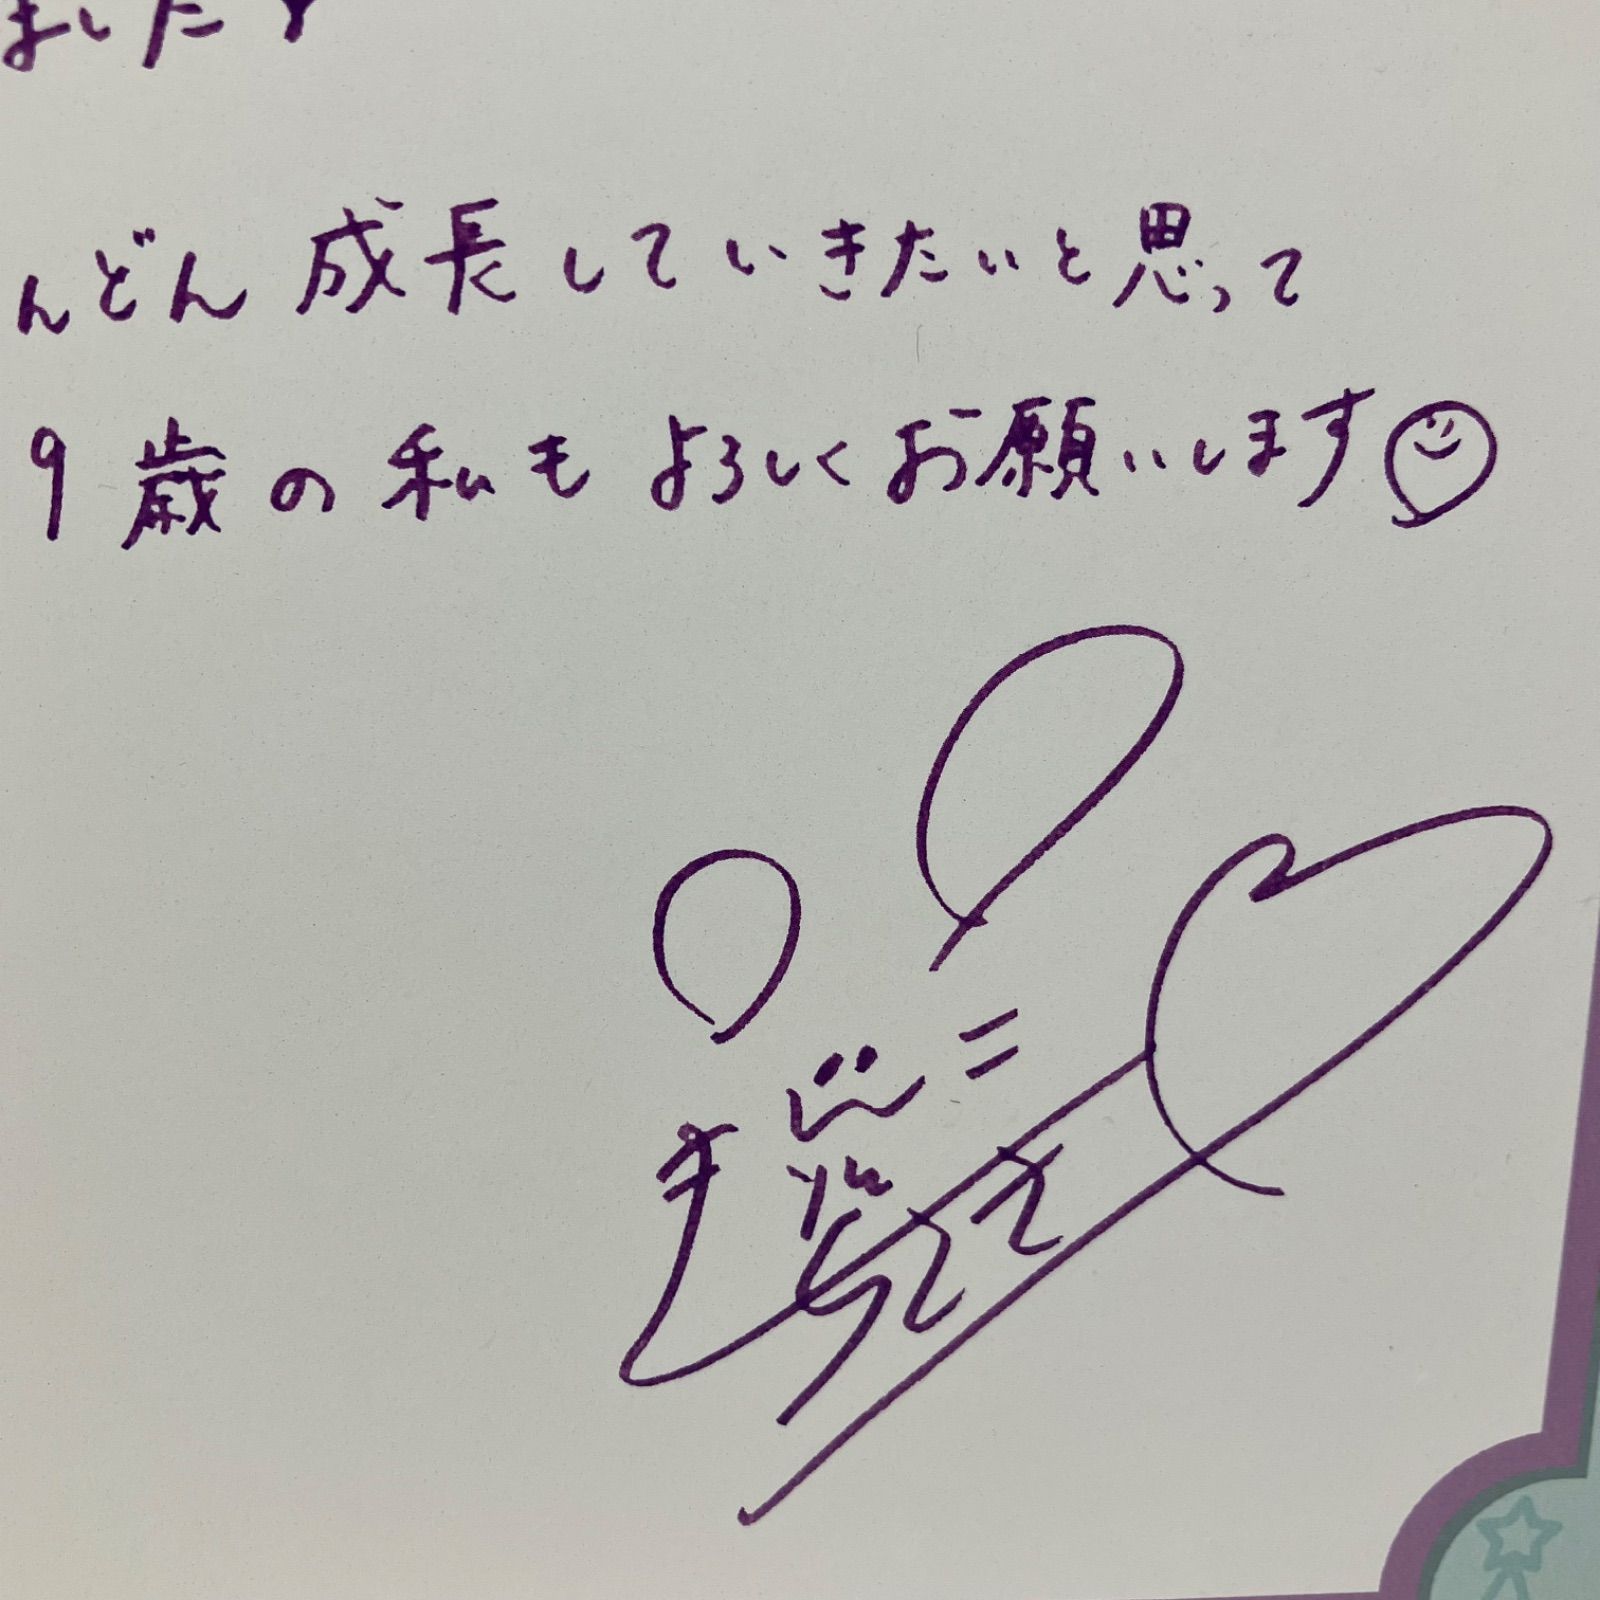 ました
んどん 成長していきたいと思って
9歳の私もよろしくお願いします